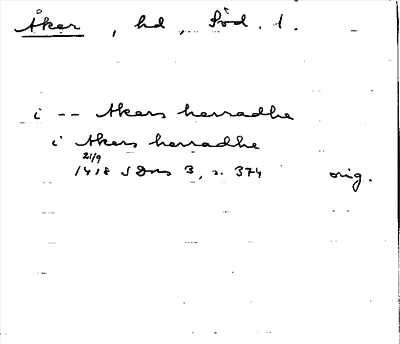 Åker, hd, Söd. l.
i -- Akers herradhe
i Akers herradhe
21/9
1418 SDns 3, s. 374 orig.